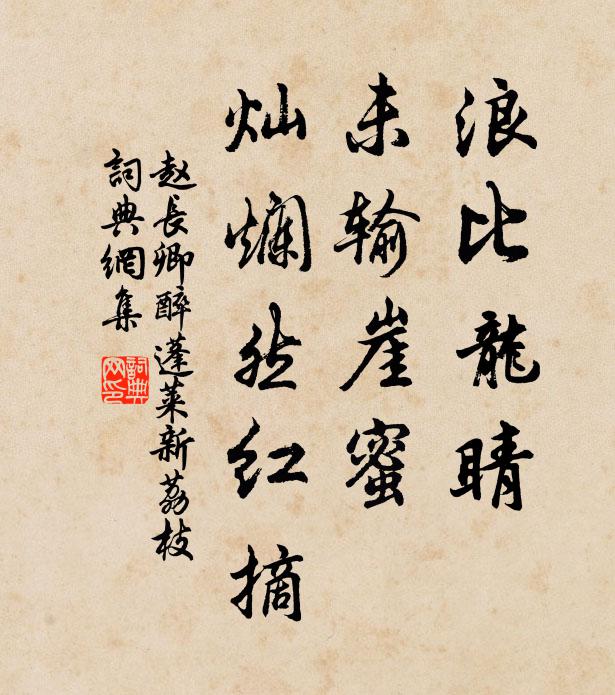 浪比龍睛
未输崖蜜
灿爛然红摘
赵長卿醉蓬莱新荔枝
詞典網集
詞典网印